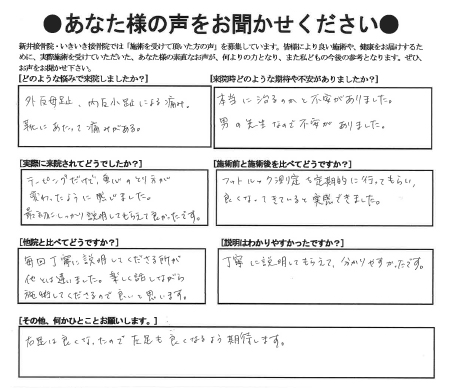 ●あなた様の声をお聞かせください●
新井接骨院・いきいき接骨院では「施術を受けて頂いた方の声」を募集しています。皆様により良い施術や、健康をお届けするた
めに、実際施術を受けていただいた、あなた様の素直なお声が、何よりの力となり、また私どもの今後の参考となります。ぜひ、
お声をお聞かせ下さい。
[どのような悩みで来院しましたか？]
外反母趾、内反小趾による痛み。
靴にあたって痛みがある。
[来院時どのような期待や不安がありましたか？]
本当に治るのかと不安がありました。
男の先生なので不安がありました。
[実際に来院されてどうでしたか？]
テーピングだけで、重心のとり方が
変わったように感じました。
最初にしっかり説明してもらえて良かったです。
[施術前と施術後を比べてどうですか？]
フットルック測定を定期的に行ってもらい、
良くなってきていると実感できました。
[他院と比べてどうですか？]
毎回丁寧に説明してくださる所が
他とは違いました。楽しく話しながら
施術してくださるので良いと思います。
[説明はわかりやすかったですか？]
丁寧に説明してもらえて、分かりやすかったです。
[その他、何かひとことお願いします。]
右足は良くなったので左足も良くなるよう期待します。